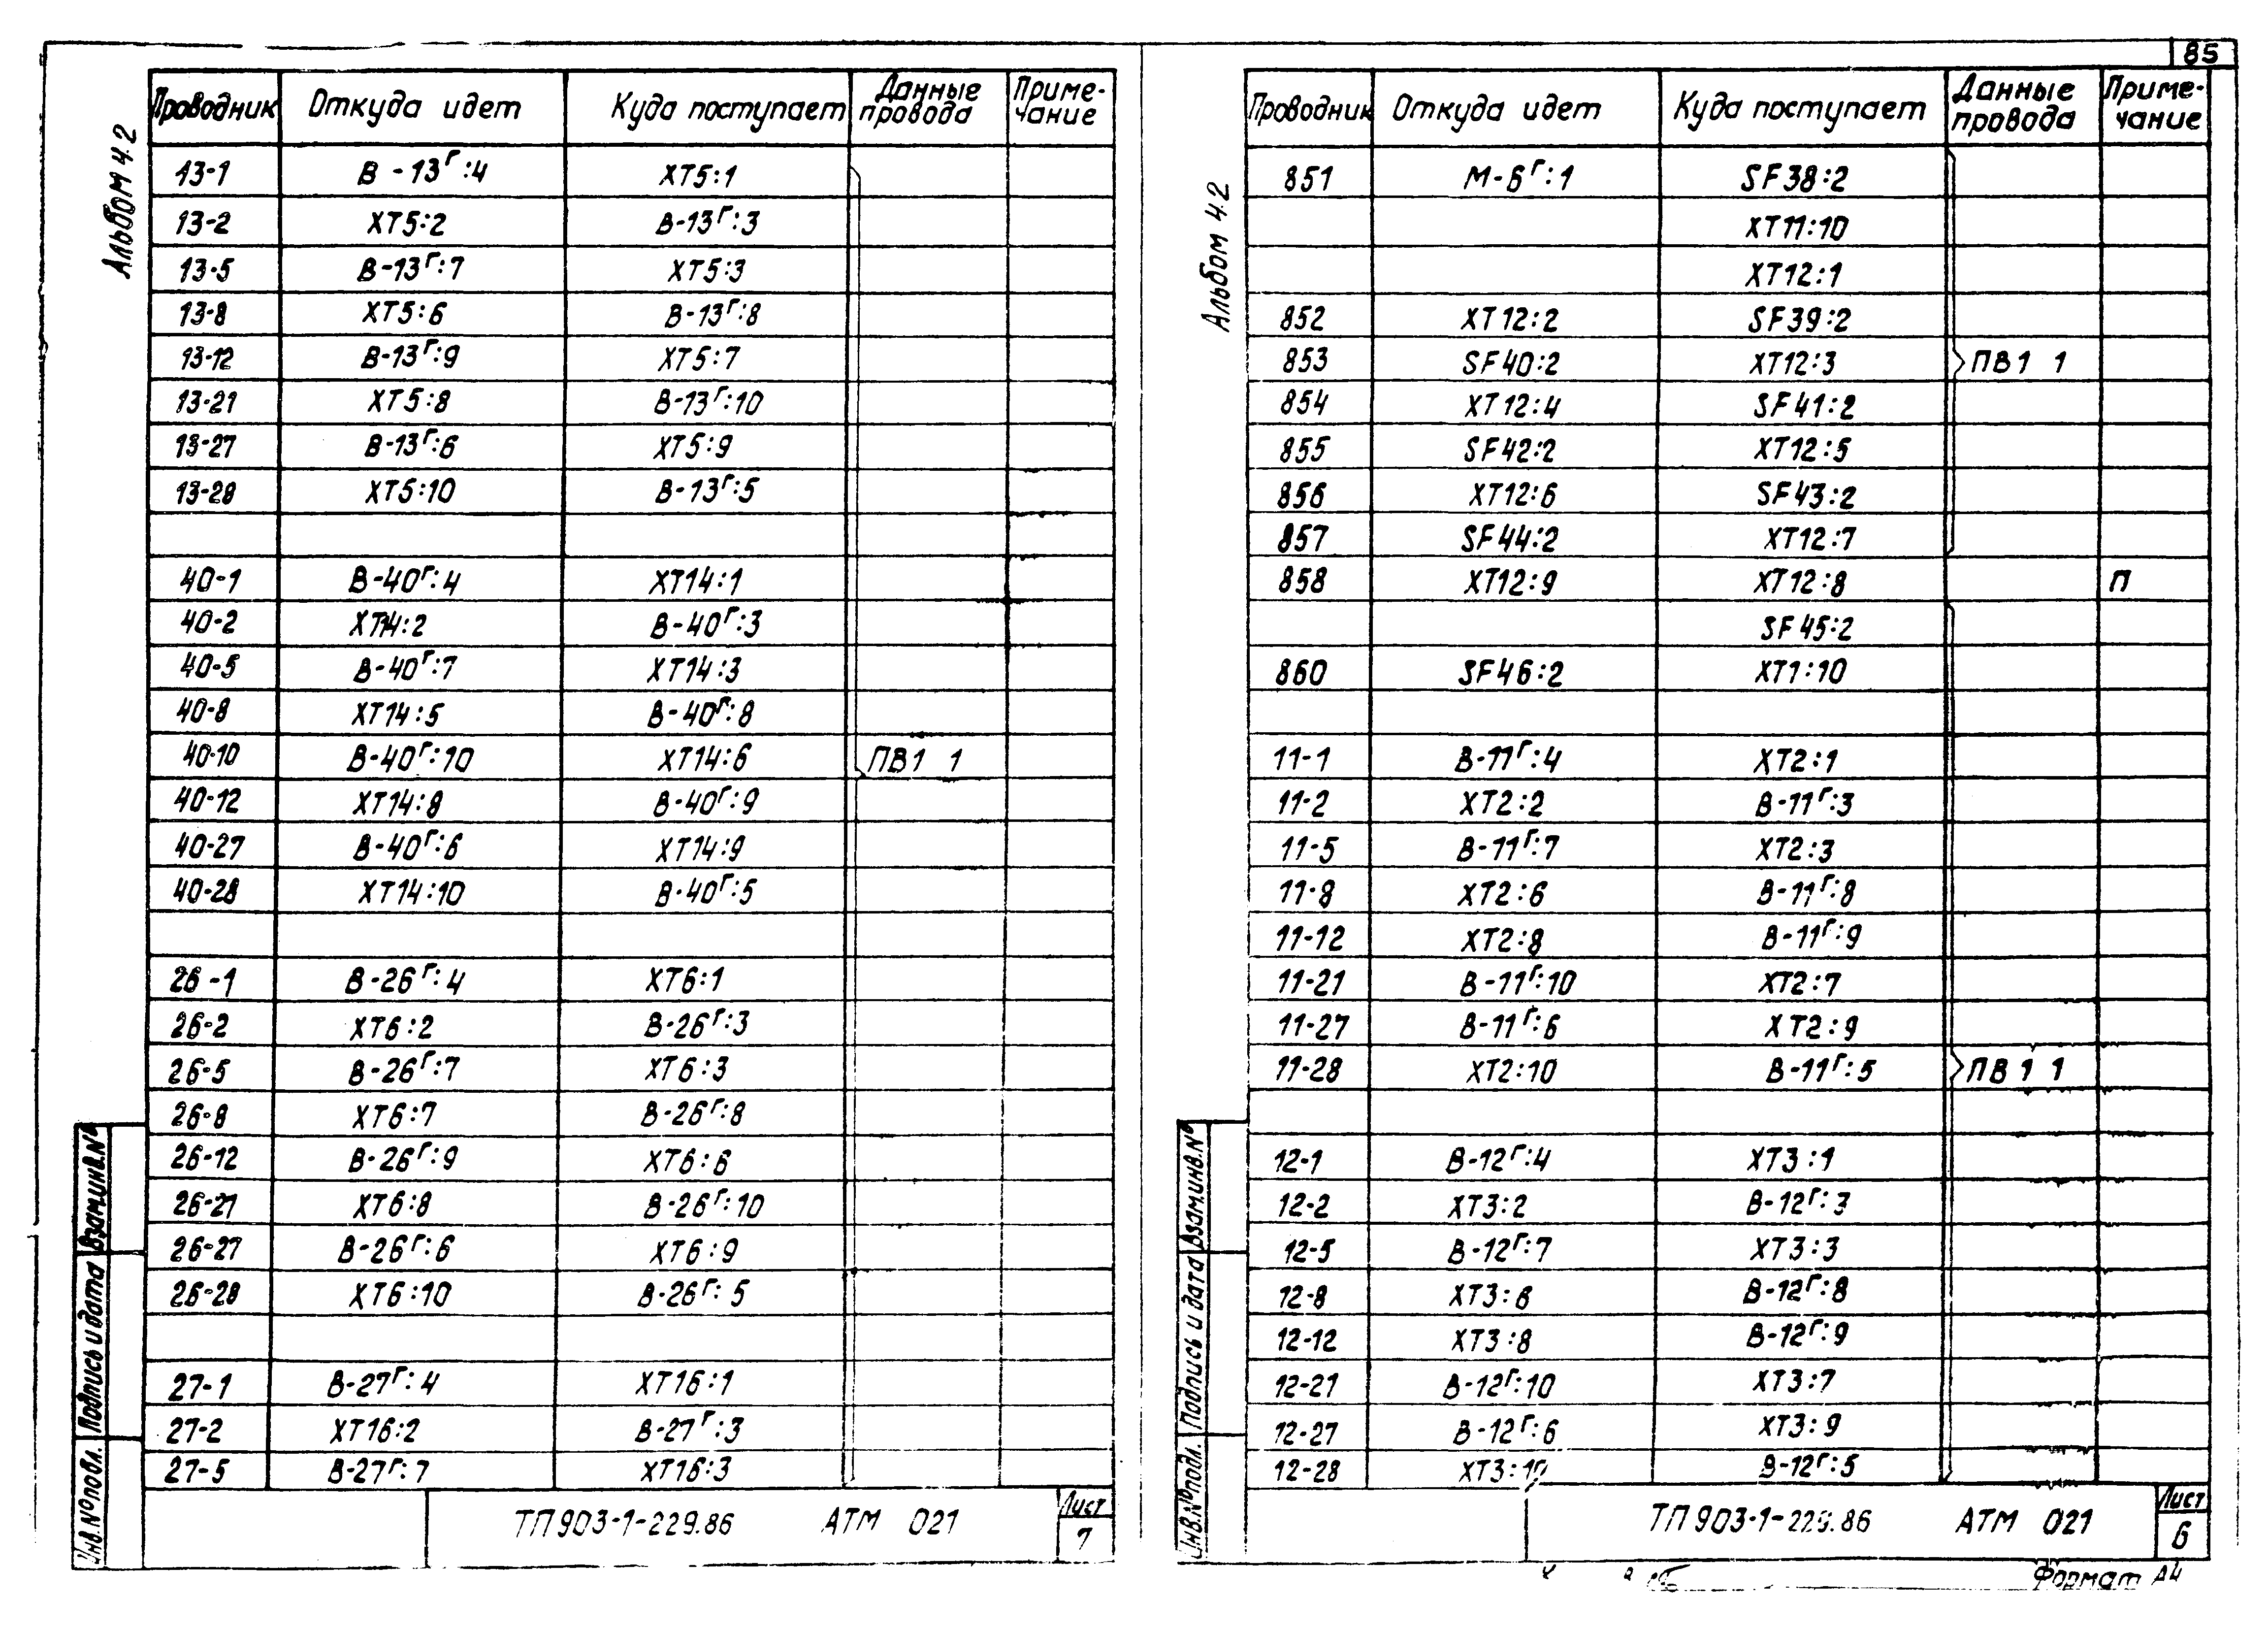 85
Альбом 4.2
Проводник Откуда идет Куда поступает Данные провода Приме-чание
13-1 В-13Г:4 ХТ5:1
13-2 ХТ5:2 В-13Г:3
13-5 В-13Г:7 ХТ5:3
13-8 ХТ5:6 В-13Г:8
13-12 В-13Г:9 ХТ5:7
13-21 ХТ5:8 В-13Г:10
13-27 В-13Г:6 ХТ5:9
13-28 ХТ5:10 В-13Г:5
40-1 В-40Г:4 ХТ14:1
40-2 ХТ14:2 В-40Г:3
40-5 В-40Г:7 ХТ14:3
40-8 ХТ14:5 В-40Г:8
40-10 В-40Г:10 ХТ14:6 ПВ1 1
40-12 ХТ14:8 В-40Г:9
40-27 В-40Г:6 ХТ14:9
40-28 ХТ14:10 В-40Г:5
26-1 В-26Г:4 ХТ6:1
26-2 ХТ6:2 В-26Г:3
26-5 В-26Г:7 ХТ6:3
26-8 ХТ6:7 В-26Г:8
26-12 В-26Г:9 ХТ6:6
26-21 ХТ6:8 В-26Г:10
26-27 В-26Г:6 ХТ6:9
26-28 ХТ6:10 В-26Г:5
27-1 В-27Г:4 ХТ16:1
27-2 ХТ16:2 В-27Г:3
27-5 В-27Г:7 ХТ16:3
Инв.№подл. Подпись и дата Взам.инв.№
ТП 903-1-229.86 АТМ 021
Лист
7
Альбом 4.2
Проводник Откуда идет Куда поступает Данные провода Приме-чание
851 М-6Г:1 SF38:2
ХТ11:10
ХТ12:1
852 ХТ12:2 SF39:2
853 SF40:2 ХТ12:3 ПВ1 1
854 ХТ12:4 SF41:2
855 SF42:2 ХТ12:5
856 ХТ12:6 SF43:2
857 SF44:2 ХТ12:7
858 ХТ12:9 ХТ12:8 П
SF45:2
860 SF46:2 ХТ1:10
11-1 В-11Г:4 ХТ2:1
11-2 ХТ2:2 В-11Г:3
11-5 В-11Г:7 ХТ2:3
11-8 ХТ2:6 В-11Г:8
11-12 ХТ2:8 В-11Г:9
11-21 В-11Г:10 ХТ2:7
11-27 В-11Г:6 ХТ2:9
11-28 ХТ2:10 В-11Г:5 ПВ1 1
12-1 В-12Г:4 ХТ3:1
12-2 ХТ3:2 В-12Г:3
12-5 В-12Г:7 ХТ3:3
12-8 ХТ3:6 В-12Г:8
12-12 ХТ3:8 В-12Г:9
12-21 В-12Г:10 ХТ3:7
12-27 В-12Г:6 ХТ3:9
12-28 ХТ3:10 В-12Г:5
Инв.№подл. Подпись и дата Взам.инв.№
ТП 903-1-229.86 АТМ 021
Лист
6
Формат А4